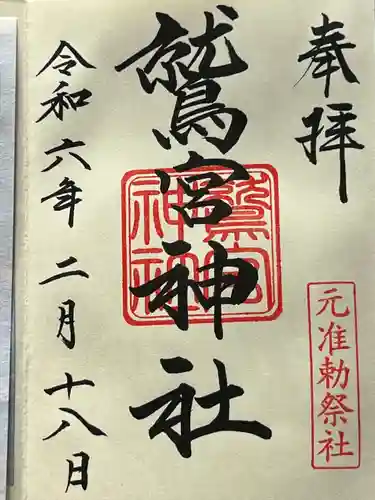 奉拝
元准勅祭社
鷲宮神社
鷲宮神社
令和六年二月十八日